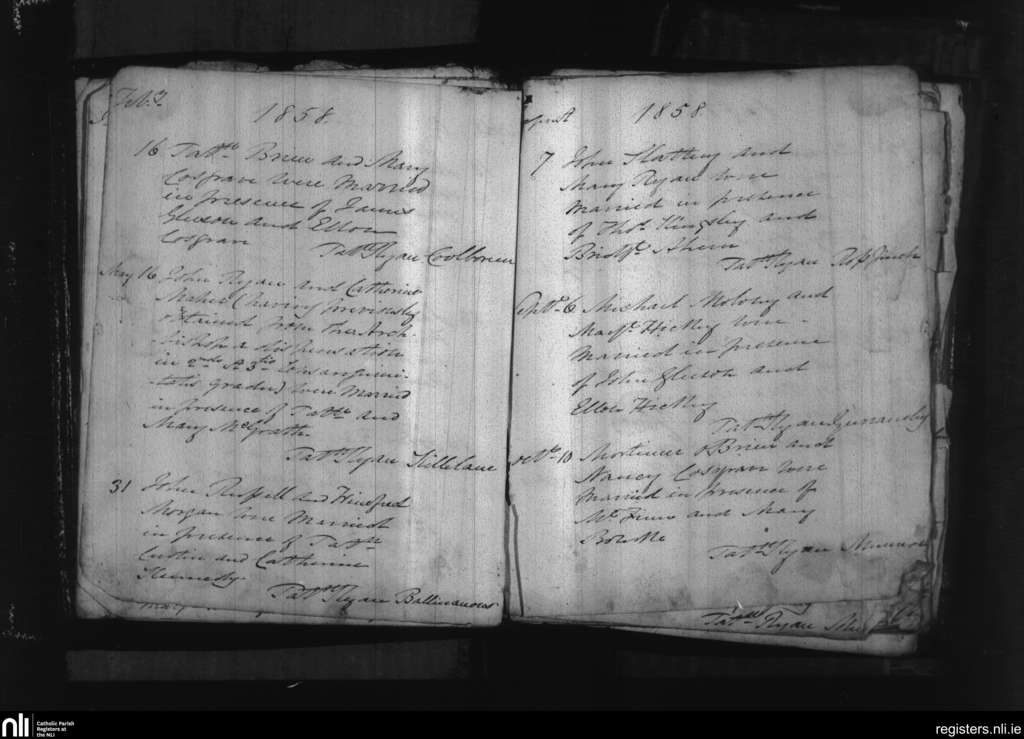 Feb.y
1858.
16 Patt.k Brien and Mary
Cosgrave were Married
in presence of James
Gleeson and Ellen
Cosgran
Patt.k Ryan Coolboreen
May 16 John Ryan and Catherine
Maher (having previously
obtained from the Arch-
bishop a dispensation
in 2.do & 3.tio consanguini-
tatis gradu) were Married
in presence of Patt.k and
Mary McGrath.
Patt.k Ryan Killelane
31 John Russell and Winefred
Morgan were Married
in presence of Patt.k
Curtin and Catherine
Hennedy.
Patt.k Ryan
1858.
7 John Slattery and
Mary Ryan were
Married in presence
of Tho.s Kingsley and
Bridg.t Ahern
Patt.k Ryan
Sept.r 6 Michael Molony and
Marg.t Hickey were
Married in presence
of John Gleeson and
Ellen Hickey
Patt.k Ryan
Oct.r 10 Mortimer O Brien and
Nancy Cosgran were
Married in presence of
Mr. Finn and Mary
Bourke
Patt.k Ryan
Patt.k Ryan
nli
Catholic Parish
Registers at
the NLI
registers.nli.ie